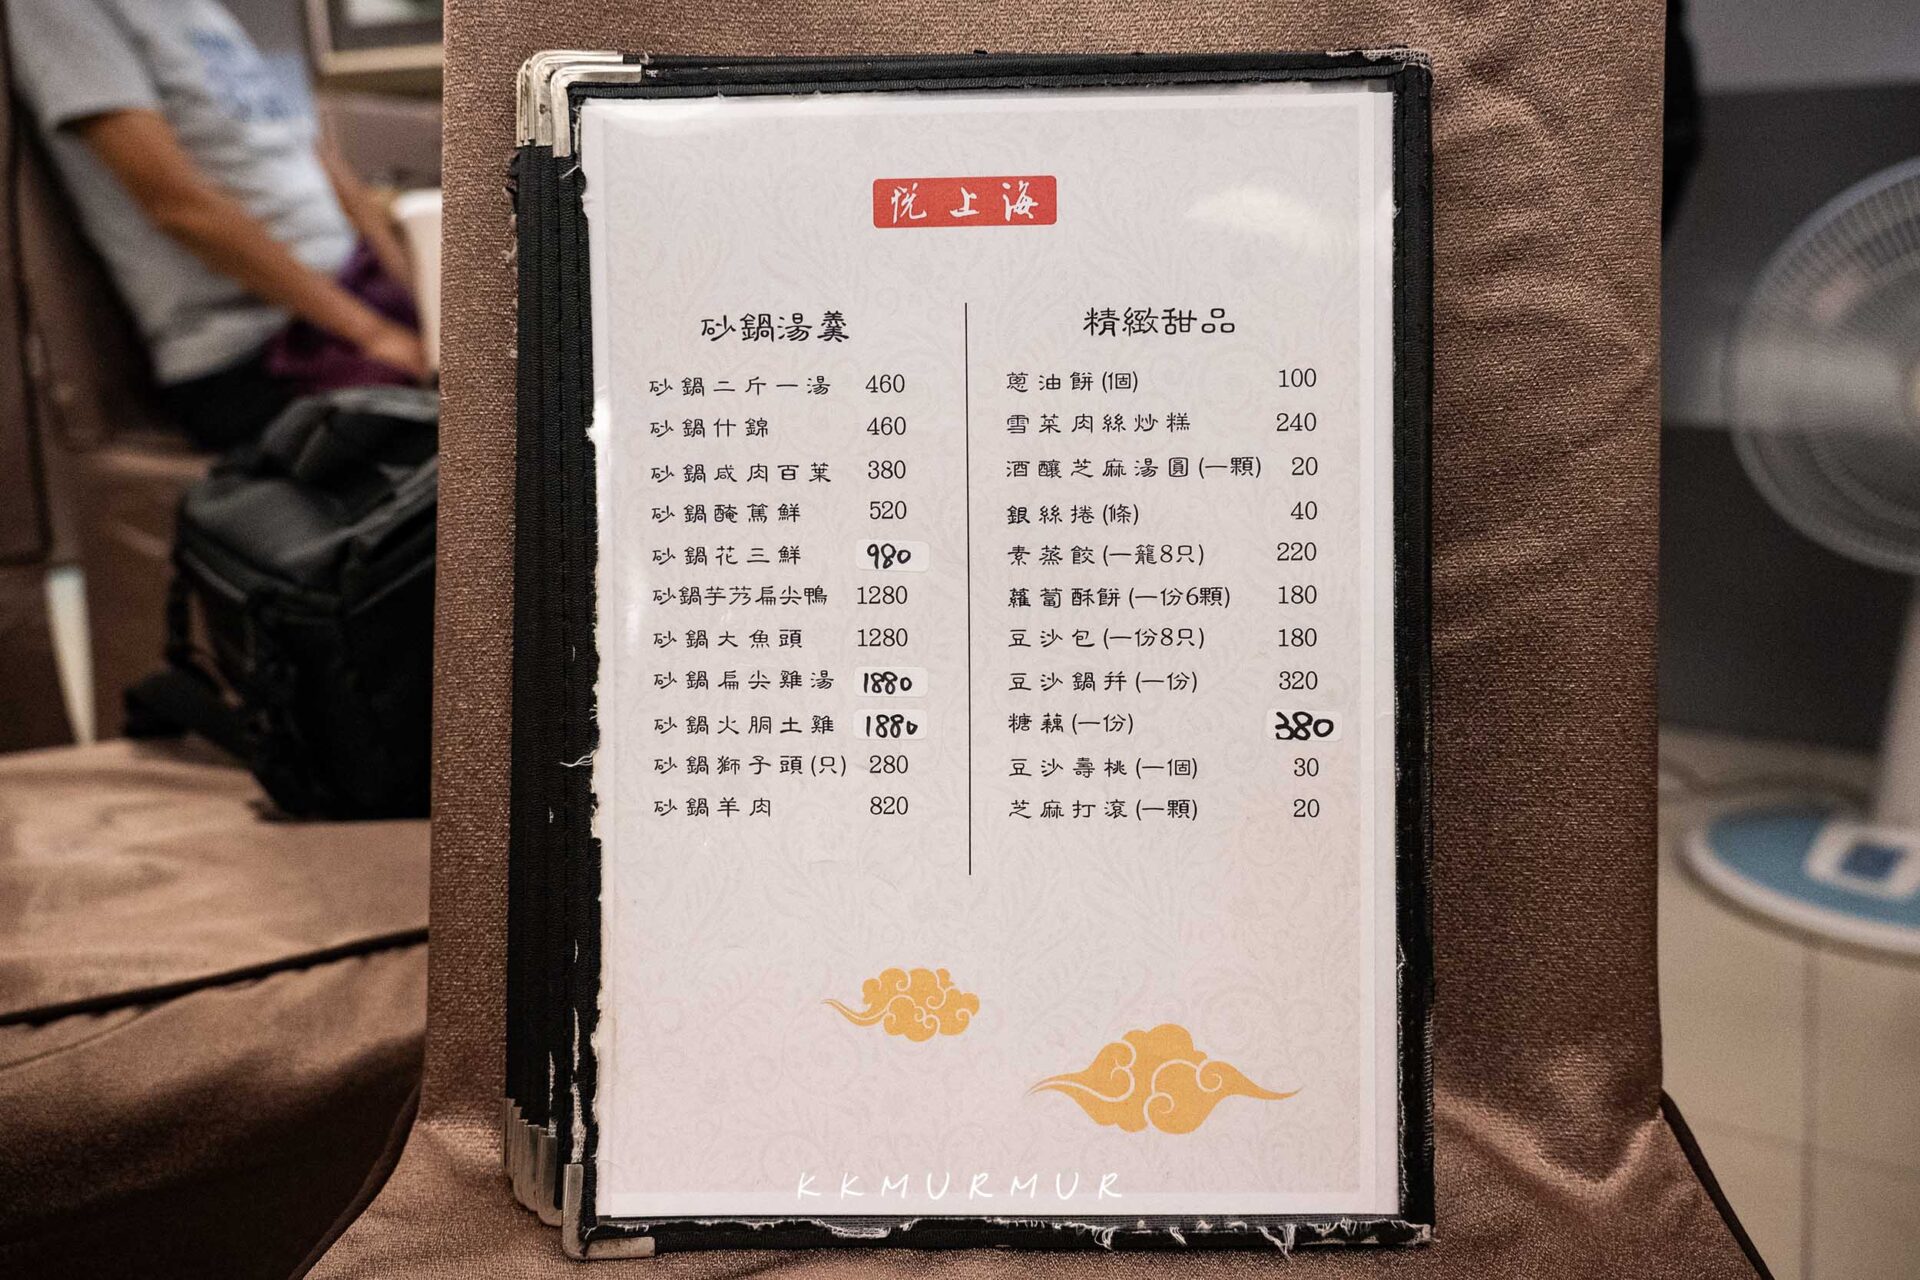 悅上海
砂鍋湯羹
砂鍋二斤一湯 460
砂鍋什錦 460
砂鍋咸肉百葉 380
砂鍋醃篤鮮 520
砂鍋花三鮮 980
砂鍋芋艿扁尖鴨 1280
砂鍋大魚頭 1280
砂鍋扁尖雞湯 1880
砂鍋火胴土雞 1880
砂鍋獅子頭(只) 280
砂鍋羊肉 820
精緻甜品
蔥油餅(個) 100
雪菜肉絲炒糕 240
酒釀芝麻湯圓(一顆) 20
銀絲捲(條) 40
素蒸餃(一籠8只) 220
蘿蔔酥餅(一份6顆) 180
豆沙包(一份8只) 180
豆沙鍋幷(一份) 320
糖藕(一份) 380
豆沙壽桃(一個) 30
芝麻打滾(一顆) 20
KKMURMUR